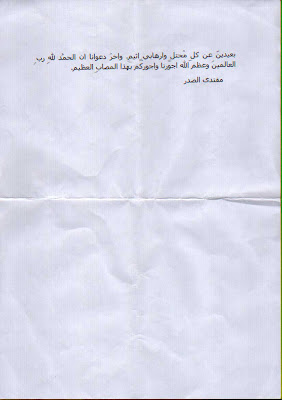 بعيدين عن كل محتل وارهابي اثيم. واخر دعوانا ان الحمد لله رب
العالمين وعظم الله اجورنا واجوركم بهذا المصاب العظيم.
مقتدى الصدر